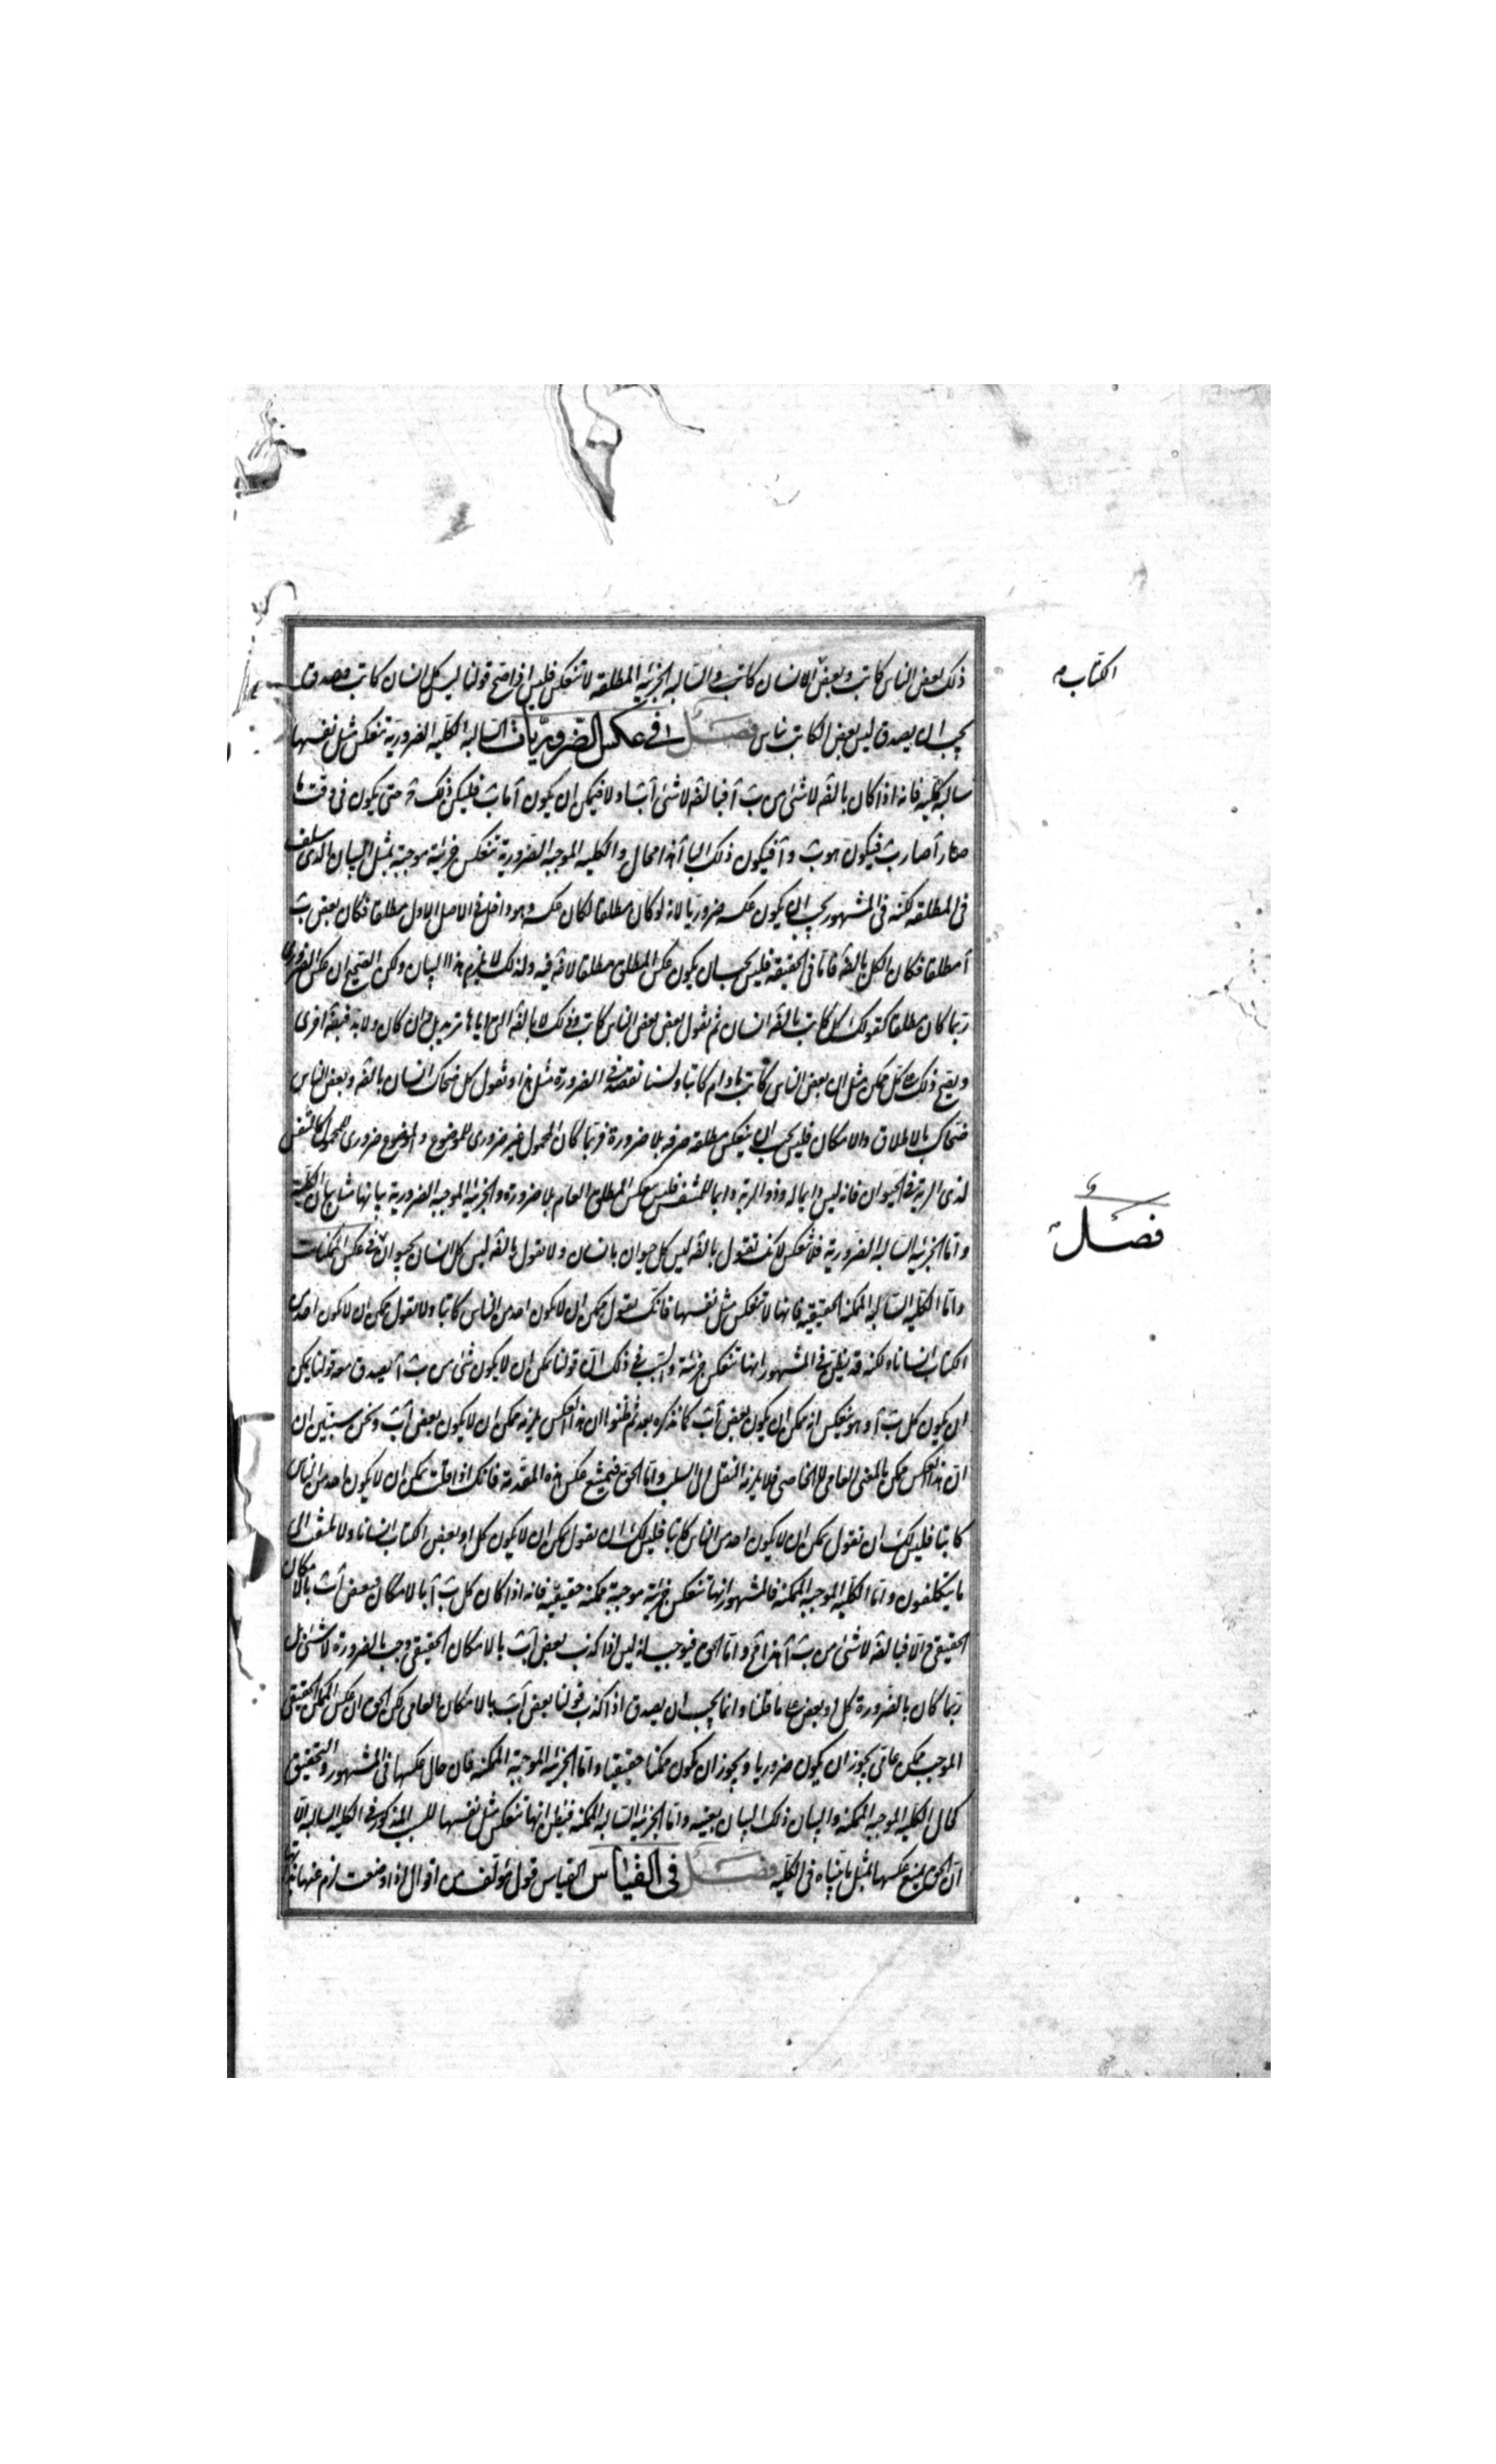 ذلك بعض الناس كاتب وبعض الانسان كاتب والسالبة الجزئية المطلقة لا تنعكس فليس اذا صح قولنا ليس كل انسان كاتب وصدق
يجب ان يصدق ليس بعض الكاتب بناس فصل في عكس الضروريات السالبة الكلية الضرورية تنعكس مثل نفسها
سالبة كلية فانه اذا كان بالضرورة لا شئ من ب آ فبالضرورة لا شئ آ ب والا فيمكن ان يكون آ ما ب فليكن ذلك حتى يكون فى وقت ما
صار آ صار ب فيكون هو ب وآ فيكون ذلك البا آ هذا محال والكلية الموجبة الضرورية تنعكس جزئية موجبة بمثل البيان الذى سلف
فى المطلقة لكنه فى المشهور يجب ان يكون عكسه ضروريا لانه لو كان مطلقا لكان عكسه وهو داخل فى الاصل الاول مطلقا فكان بعض ب
آ مطلقا فكان الكل بالضرورة فاما فى الحقيقة فليس يجب ان يكون عكس المطلق مطلقا لا ضرورة فيه ولذلك لا يلزم هذا البيان ولكن الصحيح ان عكس الضرورى
ربما كان مطلقا كقولك كل كاتب بالضرورة انسان ثم تقول بعض الناس كاتب وذلك لا بالضرورة
ويصح ذلك كل ممكن مثل ان بعض الناس كاتب ما دام كاتبا ولسنا نقصد فى الضرورة مثل هذا وتقول كل ضحاك انسان بالضرورة وبعض الناس
ضحاك بالاطلاق والامكان فليس يجب ان ينعكس مطلقة صرفه بلا ضرورة فربما كان المحمول غير ضرورى للموضوع والموضوع ضرورى للمحمول كالتنفس
لذى الرية فى الحيوان فانه ليس دايما له وذو الرية دايما للمتنفس فليس عكس المطلق العام بلا ضرورة والجزئية الموجبة الضرورية بيانها مشابه بيان الكلية
واما الجزئية السالبة الضرورية فلا تنعكس لانك تقول بالضرورة ليس كل حيوان بانسان ولا تقول بالضرورة ليس كل انسان بحيوان فى عكس الممكنات
واما الكلية السالبة الممكنة الحقيقية فانها لا تنعكس مثل نفسها فانك تقول ممكن ان لا يكون احد من الناس كاتبا ولا تقول ممكن ان لا يكون احد من
الكتاب انسانا ولكنه قد يظن فى المشهور انها تنعكس جزئية والسبب فى ذلك ان قولنا يمكن ان لا يكون شئ من ب آ يصدق معه قولنا يمكن
ان يكون كل ب آ وهو ينعكس انه ممكن ان يكون بعض آ ب كما نذكره بعد ثم ظنوا ان هذا العكس يلزمه ممكن ان لا يكون بعض آ ب ونحن سنبين ان
ان هذا العكس ممكن بالمعنى العامى لا الخاصى فلا يلزمه النقل الى السلب واما الحق فيمتنع عكس هذه المقدمة فانك اذا قلت يمكن ان لا يكون احد من الناس
كاتبا فليس لك ان تقول يمكن ان لا يكون احد من الناس كاتبا فليس لك ان تقول يمكن ان لا يكون كل او بعض الكتاب انسانا ولا تلتفت الى
ما يتكلفون واما الكلية الموجبة الممكنة فالمشهور انها تنعكس جزئية موجبة ممكنة حقيقية فانه اذا كان كل ب آ بالامكان فبعض آ ب بالامكان
الحقيقى والا فبالضرورة لا شئ من ب آ هذا واما الحق فيوجب انه ليس اذا كذب بعض آ ب بالامكان الحقيقى وجب بالضرورة لا شئ بل
ربما كان بالضرورة كل او بعض ما قلنا وانما يجب ان يصدق اذا كذب قولنا بعض آ ب بالامكان العامى لكن الحق ان عكس الممكن الحقيقى
الموجب ممكن عامى يجوز ان يكون ضروريا ويجوز ان يكون ممكنا حقيقيا واما الجزئية الموجبة الممكنة فان حال عكسها فى المشهور والتحقيق
كحال الكلية الموجبة الممكنة والبيان ذلك البيان بعينه واما الجزئية السالبة الممكنة فيظن انها تنعكس مثل نفسها للسبب المذكور فى الكلية السالبة الا
ان الحق يمنع عكسها بمثل ما بيناه فى الكلية فصل فى القياس القياس قول مؤلف من اقوال اذا وضعت لزم عنها
الكتاب
فصل